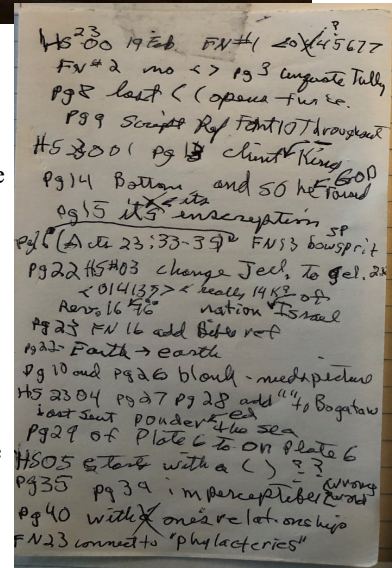 HS 23 00 19 Feb FN#1 45677
FN#2 no <> pg 3 unquote Tully
pg 8 last ( ( opens twice.
pg 9 Script Ref Font 10 Throughout
HS 3001 pg 13 client King
pg 14 Bottom, and so he found GOD
pg 15 it's its inscription
pg 16 (Acts 23:33-35) FN 13 bowsprit sp
pg 22 HS#03 change Jecl. to gel. 2x
<014133> < really 14K? of
Rev. 16 nation Israel
pg 23 FN 16 add Bible ref
pg 22 Earth → earth
pg 10 and pg 26 blank - need picture
HS 2304 pg 27 pg 28 add "" to Bogataw
Last sent ponder ed the sea
pg 29 of Plate 6 to on Plate 6
HS05 starts with a ( ) ? ?
pg 35 pg 39 imperceptible (wrong word
pg 40 with one's relationship
FN 23 connect to "phylacteries"